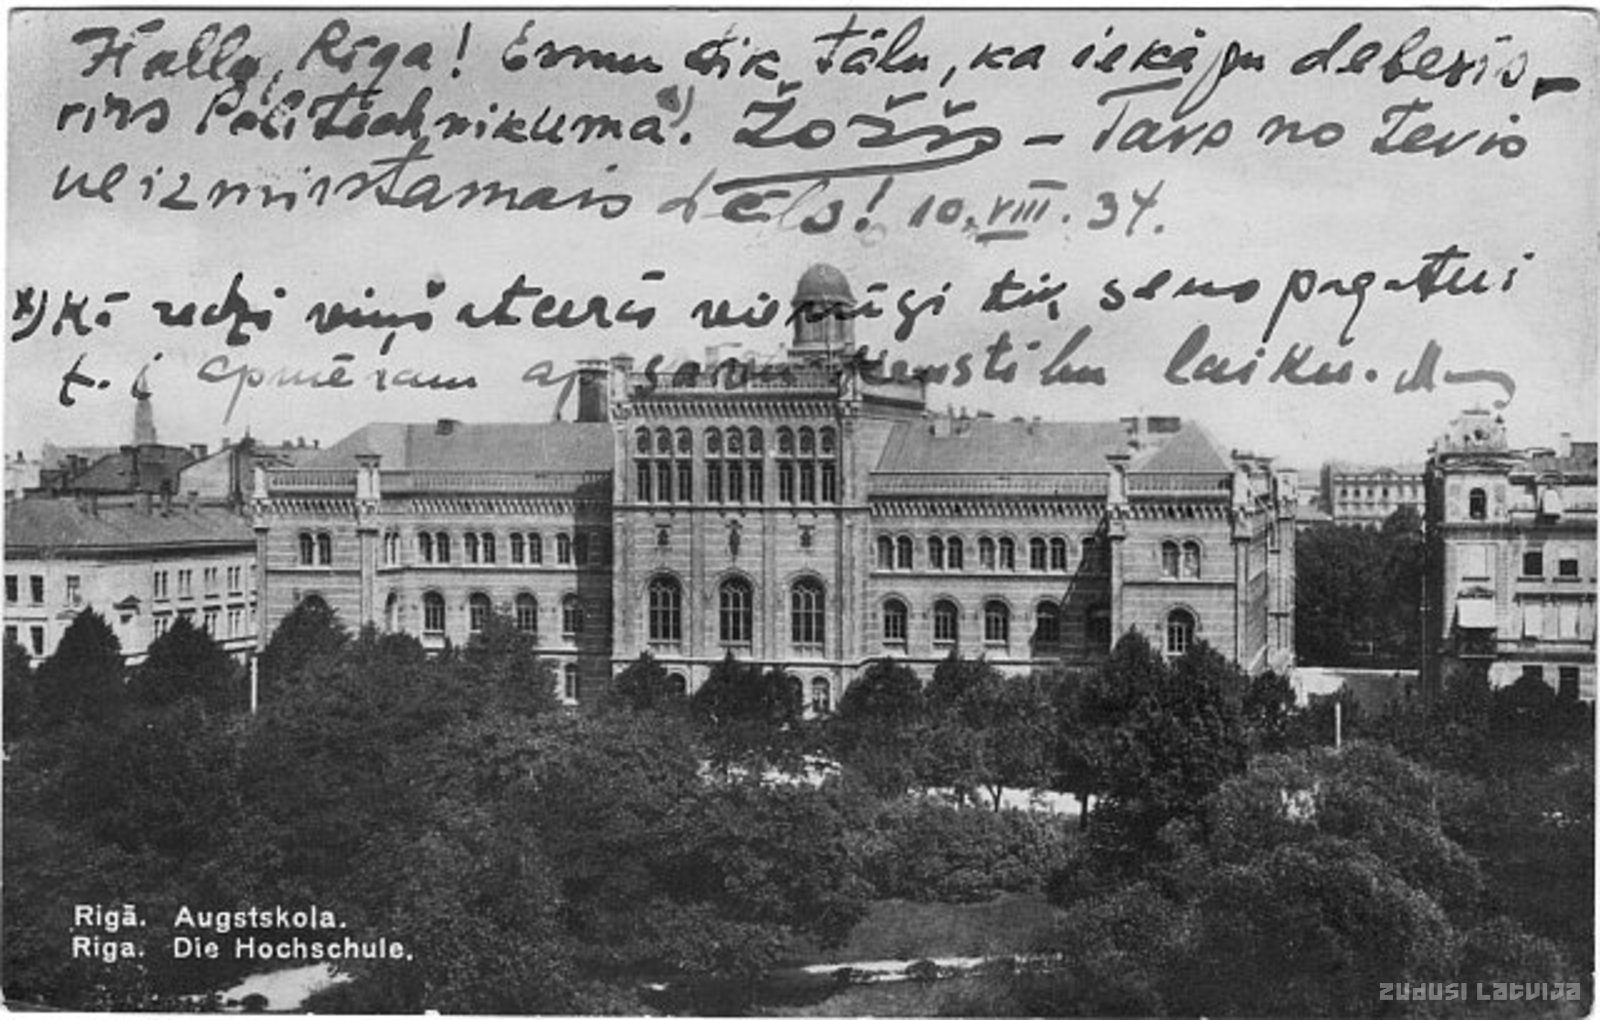 Hallo, Rīga! Esmu tik tālu, ka iekāpu debesīs-
rīvs Politechnikumā.*) Žoržs – Tavs no tevis
neizmirstamais dēls! 10. VIII. 34.
*) Kā redzi viņš atcerās vienīgi tik seno pagātni
t. i apmēram ap savu laiku.
Rigā. Augstskola.
Riga. Die Hochschule.
ZUDUSI LATVIJA